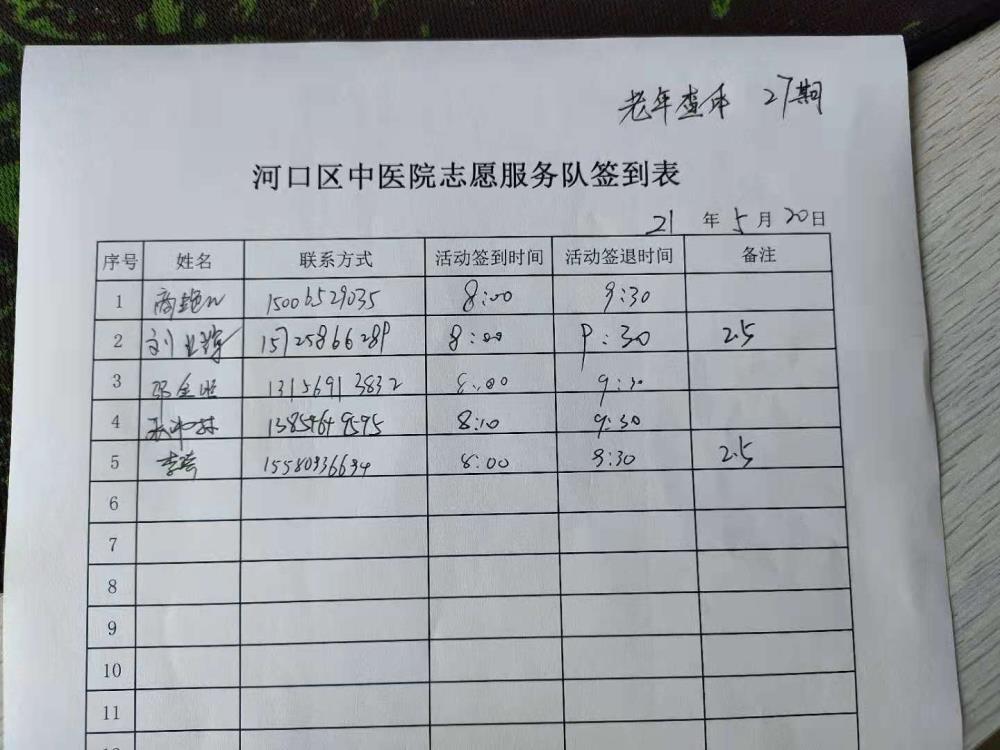 老年查体 27期
河口区中医院志愿服务队签到表
21 年 5 月 20 日
序号 姓名 联系方式 活动签到时间 活动签退时间 备注
1 15006529035 8:00 9:30
2 刘 15725866289 8:00 9:30 2.5
3 13156913832 8:00 9:30
4 13854649595 8:10 9:30
5 李 15580936694 8:00 9:30 2.5
6
7
8
9
10
11